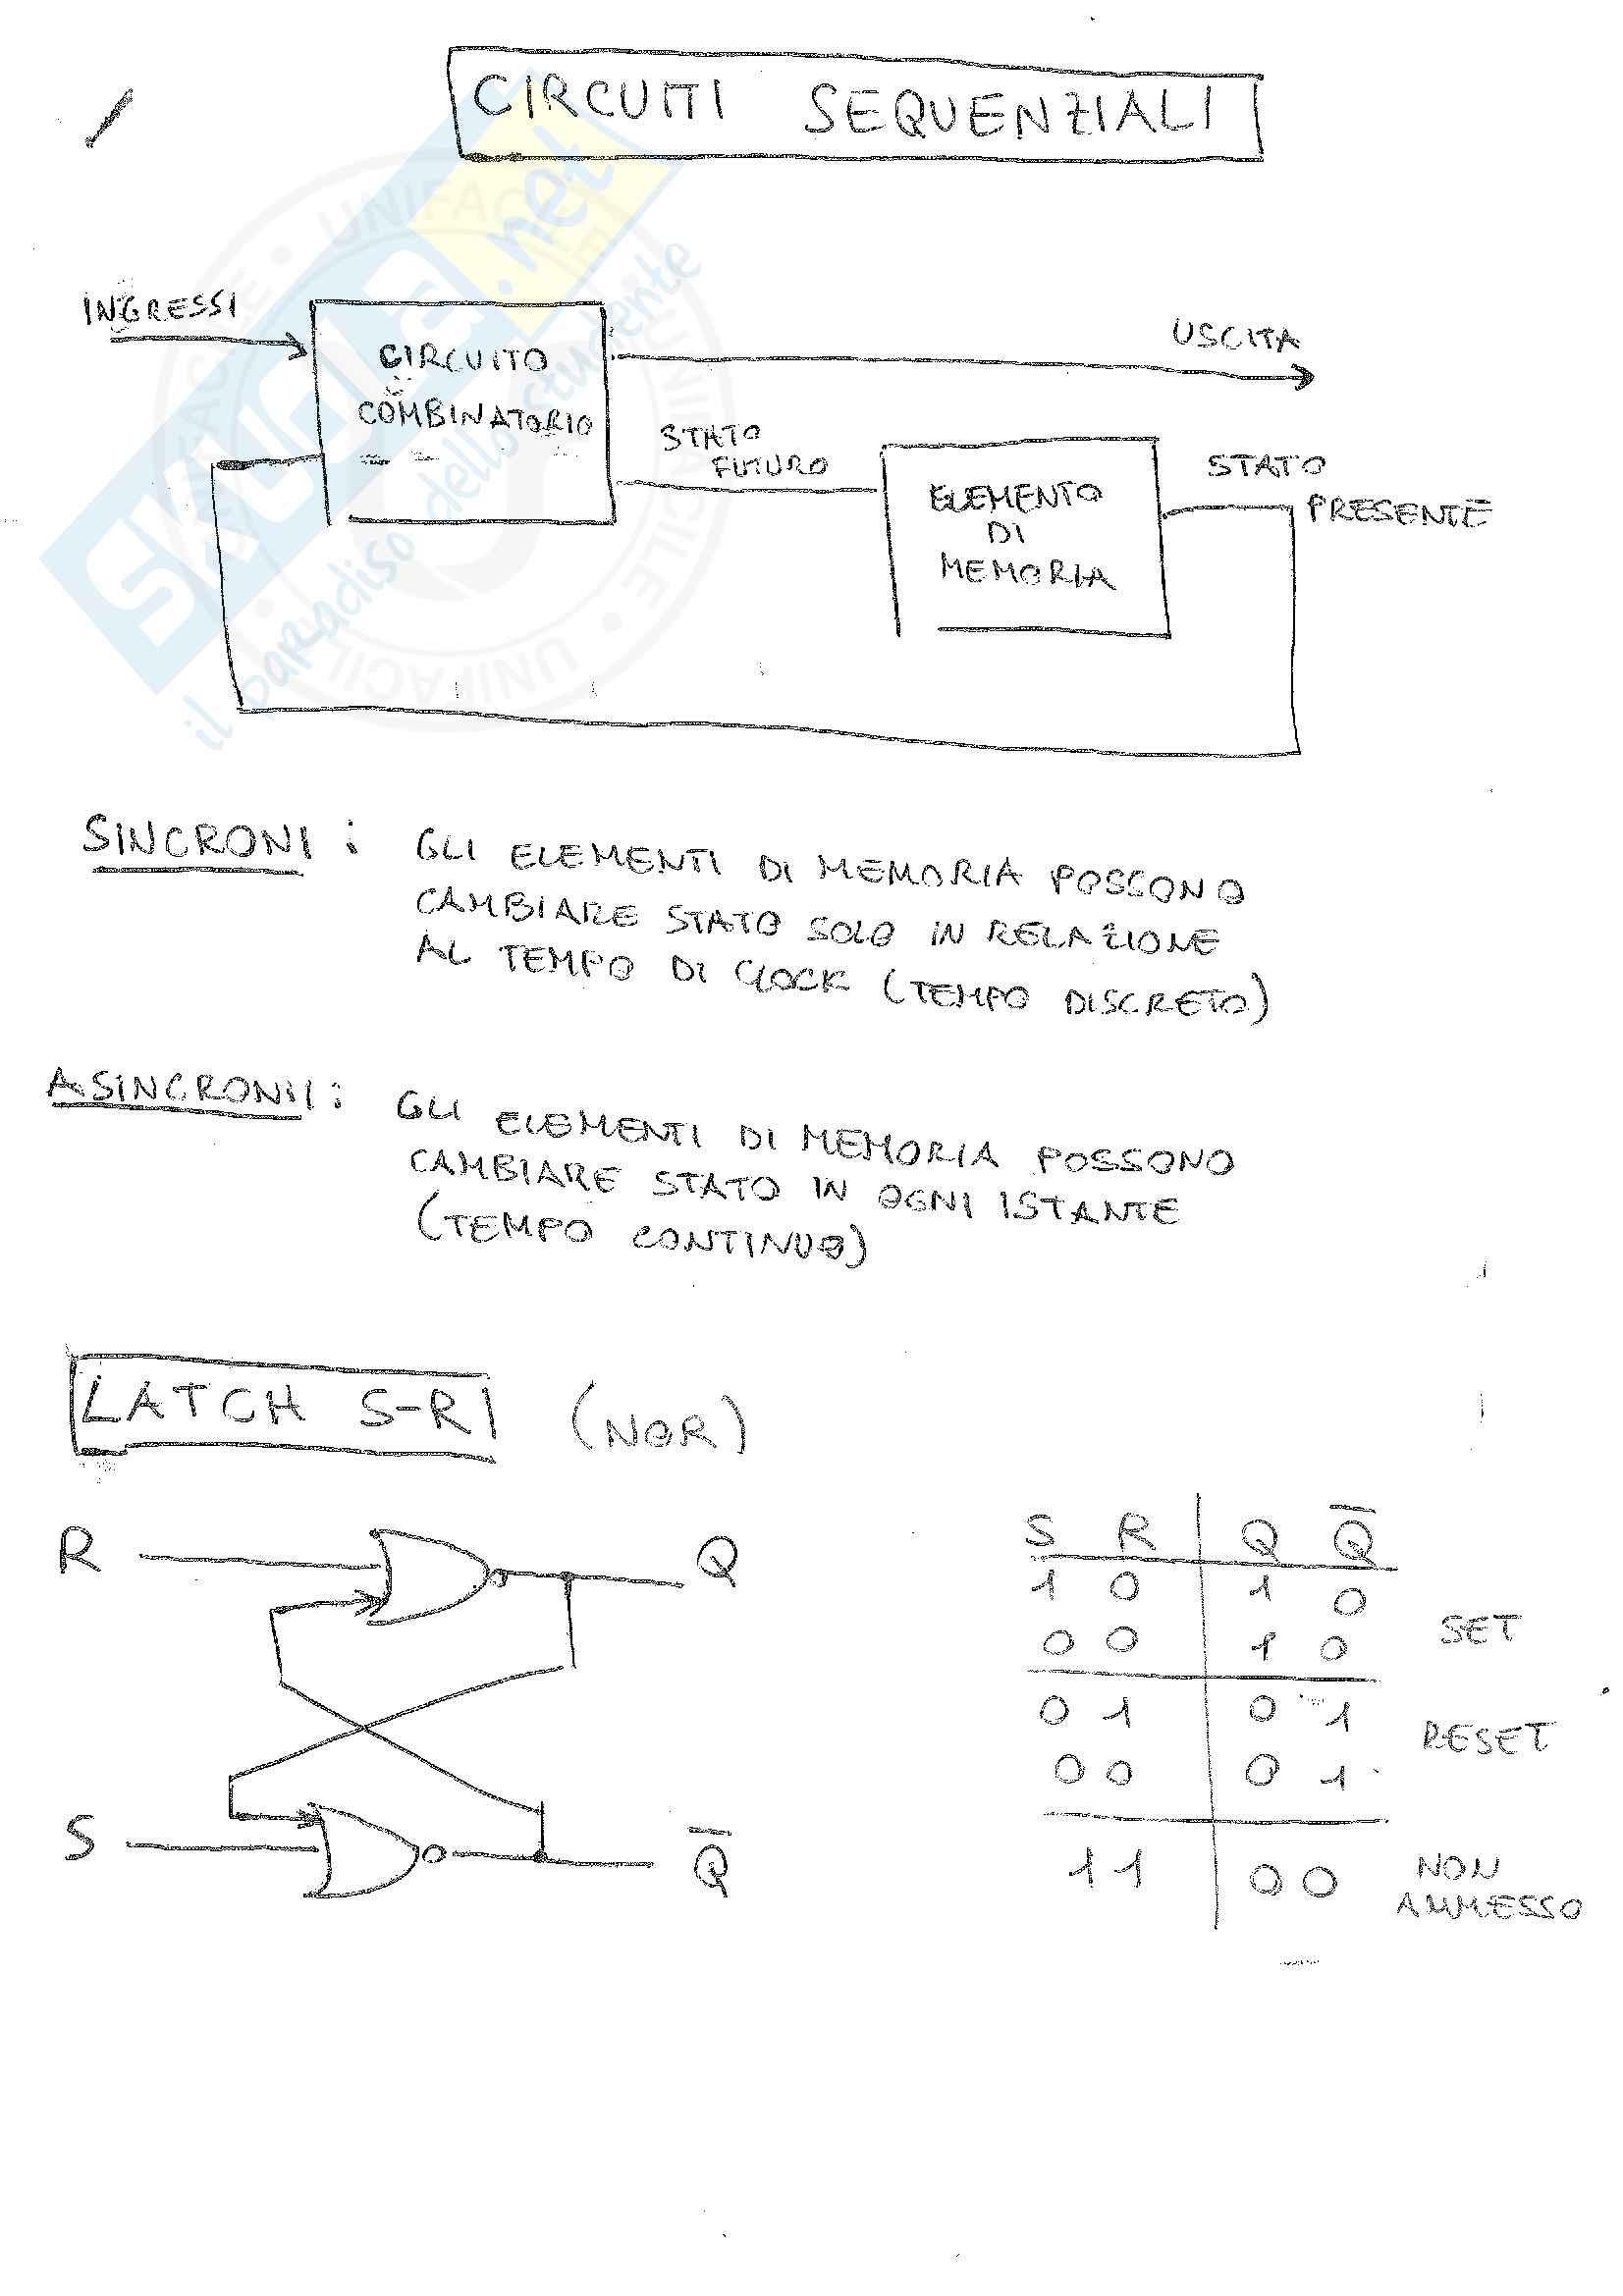 CIRCUITI SEQUENZIALI
INGRESSI
CIRCUITO
COMBINATORIO
USCITA
STATO
FUTURO
ELEMENTO
DI
MEMORIA
STATO
PRESENTE
SINCRONI : GLI ELEMENTI DI MEMORIA POSSONO
CAMBIARE STATO SOLO IN RELAZIONE
AL TEMPO DI CLOCK (TEMPO DISCRETO)
ASINCRONI : GLI ELEMENTI DI MEMORIA POSSONO
CAMBIARE STATO IN OGNI ISTANTE
(TEMPO CONTINUO)
LATCH S-R (NOR)
R Q
S Q̅
S R Q Q̅
1 0 1 0
0 0 1 0
SET
0 1 0 1
RESET
0 0 0 1
1 1 0 0
NON
AMMESSO
SKUOLA.net
il paradiso dello studente
UNIFACILE • UNIFACILE • UNIFACILE